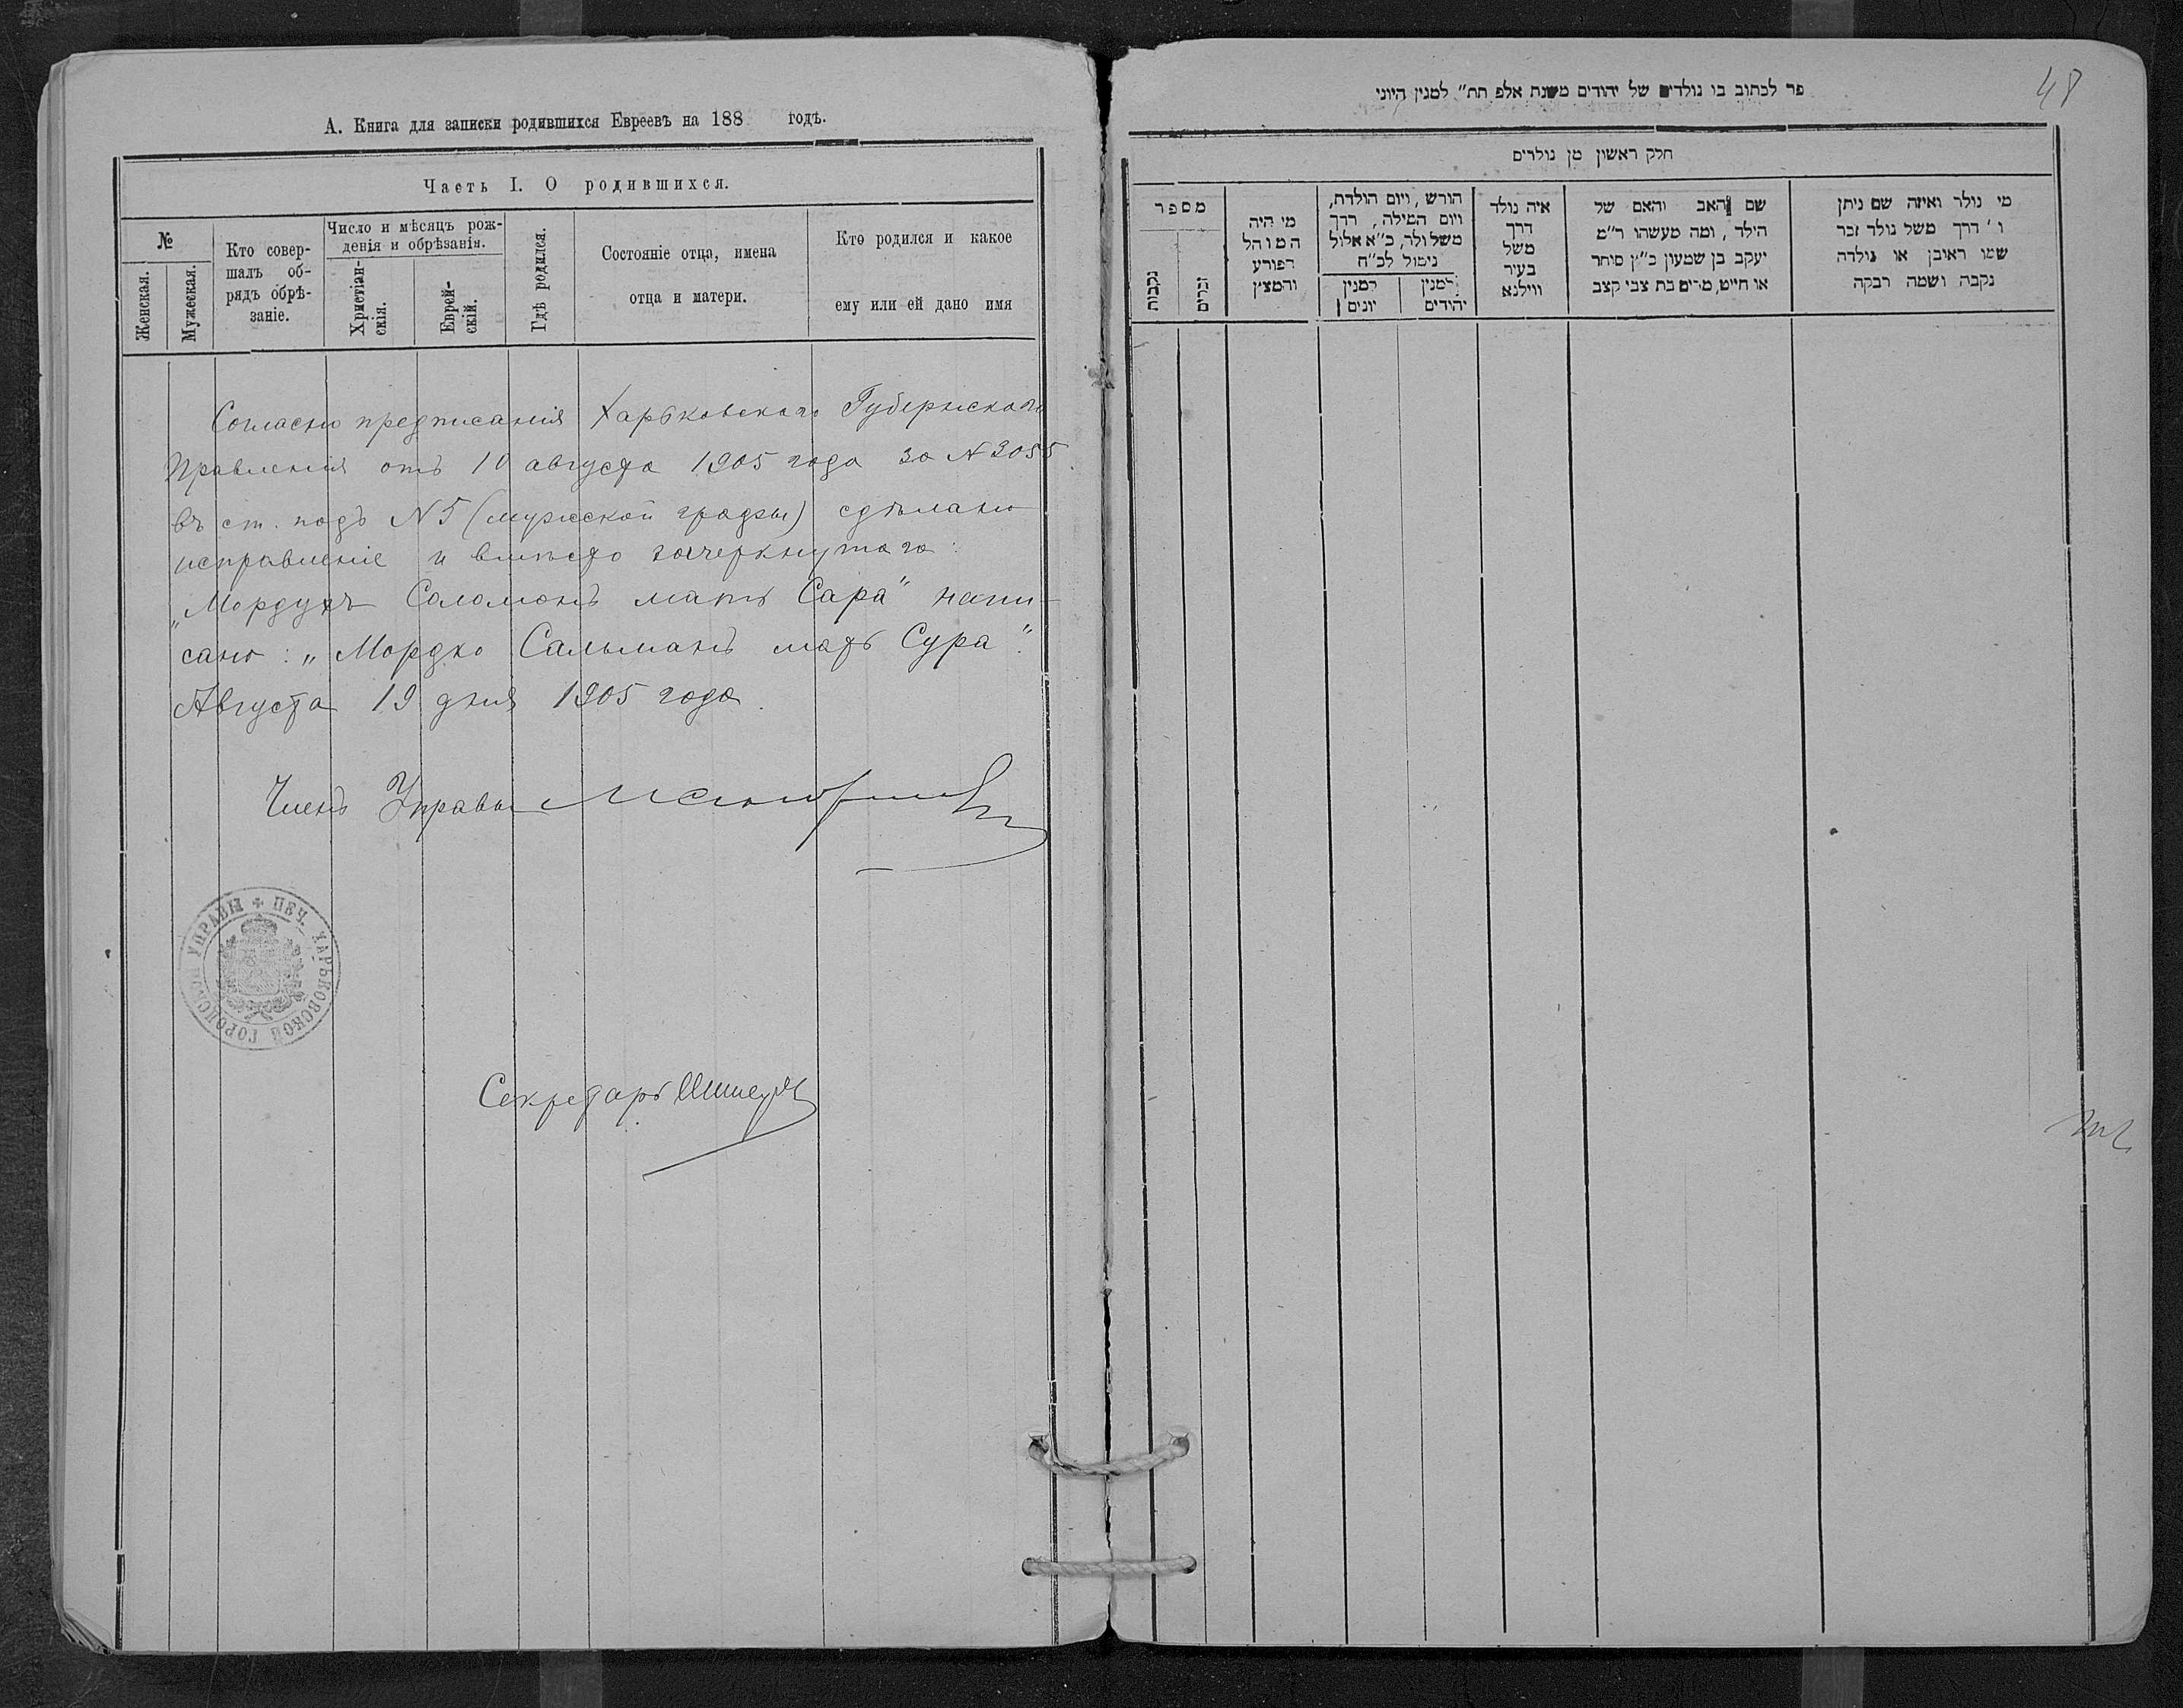 А. Книга для записки родившихся Евреевъ на 188 годъ.
Часть I. О родившихся.
№
Женская.
Мужеская.
Кто совер-
шалъ об-
рядъ обрѣ-
заніе.
Число и мѣсяцъ рож-
денія и обрѣзанія.
Христіан-
скія.
Еврей-
скій.
Гдѣ родился.
Состояніе отца, имена
отца и матери.
Кто родился и какое
ему или ей дано имя
Согласно предписанія Харьковскаго Губернскаго
Правленія отъ 10 августа 1905 года за №
въ ст. подъ N 5 (мужеской графы) сдѣлано
исправленіе и вмѣсто зачеркнутаго:
„Мордухъ Соломонъ мать Сара" напи-
сано: „Мордко Сальманъ мать Сура".
Августа 19 дня 1905 года.
Членъ Управы
ПЕЧ. ХАРЬКОВСКОЙ ГОРОДСКОЙ УПРАВЫ
Секретарь
48
פר לכתוב בו נולדים של יהודים משנת אלפ תת״ למנין היוני
חלק ראשון מן נולדים
מספר
נקבות
זכרים
מי היה
המוהל
הפורע
והמצץ
הורש, ויום הולדת,
ויום המילה, דרך
משל ולר, כ״א אלול
נימול לכ״ח
למנין
יונים
למנין
יהודים
איה נולד
דרך
משל
בעיר
ווילנא
שם האב והאם של
הילד, ומה מעשהו ר״מ
יעקב בן שמעון כ״ץ סוחר
או חייט, מרים בת צבי קצב
מי נולד ואיזה שם ניתן
ו' דרך משל נולד זכר
שמו ראובן או נולדה
נקבה ושמה רבקה